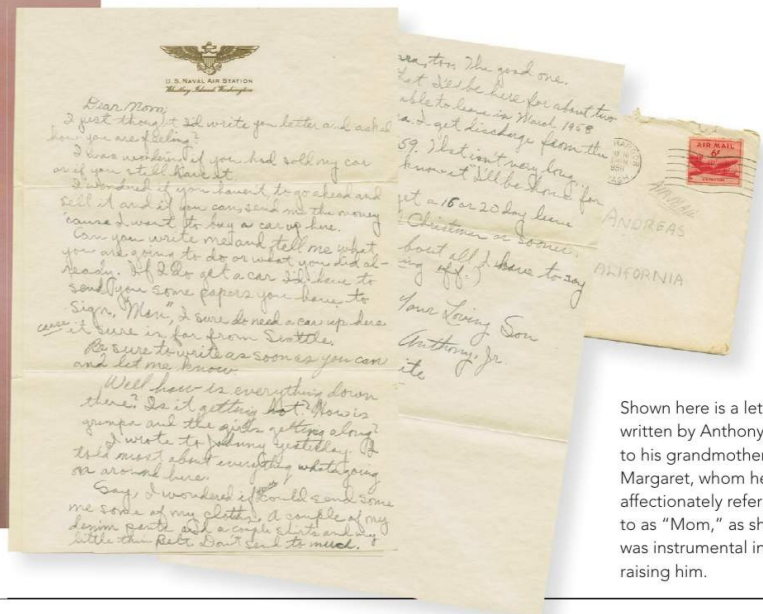 U.S. NAVAL AIR STATION
Whidbey Island Washington
Dear Mom,
I just thought I'd write you letter and ask
how you are feeling?
I was wonderin if you had sold my car
or if you still have it
I wondered if you haven't to go ahead and
sell it and if you can send me the money
'cause I want to buy a car up here.
Can you write me and tell me what
you are going to do or what you did al-
ready. If I do get a car I'd have to
send you some papers you have to
sign. "Mom", I sure do need a car up here
cause it sure is far from Seattle.
Be sure to write as soon as you can
and let me know
Well how is everything down
there? Is it getting hot? How is
grampa and the girls getting along?
I wrote to Johnny yesterday. I
told most about everything whats going
on around here.
Say, I wondered if could send some
me some of my cloths. A couple of my
denim pants and a couple shirts and my
little thin Belt. Don't send to much.
too. The good one.
I'll be here for about two
able to leave in March 1958
I get discharge from the
59. That isn't very long.
know I'll be home for
get a 15 or 20 day leave
Christmas or sooner.
bout all I have to say
ing off.)
Your Loving Son
Anthony, Jr.
ite
AIR MAIL
6¢
AIR MAIL
ANDREAS
ALIFORNIA
Shown here is a let
written by Anthony
to his grandmother
Margaret, whom he
affectionately refer
to as "Mom," as sh
was instrumental in
raising him.